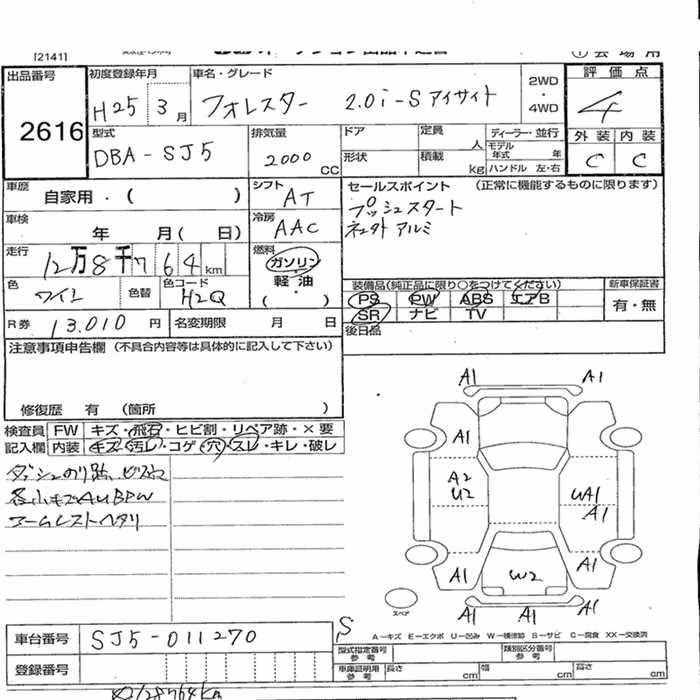 [2141]
出品番号
2616
初度登録年月
H25 3月
車名・グレード
フォレスター 2.0i-S アイサイト
2WD
・
4WD
評価点
4
外装 内装
C C
型式
DBA-SJ5
排気量
2000 CC
ドア
定員
人
形状
積載
kg
ディーラー・並行
モデル年式 年
ハンドル 左・右
車歴
自家用・( )
シフト
AT
セールスポイント (正常に機能するものに限ります)
プッシュスタート
アルミ
車検
年 月( 日)
冷房
AAC
走行
12万8千764km
燃料
ガソリン
・
軽油
・
( )
色
ワイン
色替
色コード
H2Q
装備品(純正品に限り○をつけてください)
PS PW ABS エアB
SR ナビ TV
新車保証書
有・無
後日品
R券 13,010円
名変期限 月 日
注意事項申告欄 (不具合内容等は具体的に記入して下さい)
修復歴 有 (箇所 )
検査員
記入欄
FW キズ・飛石・ヒビ割・リペア跡・×要
内装 キズ・汚レ・コゲ・穴・スレ・キレ・破レ
ダッシュのり跡、ビス穴
各小キズAUBPW
アームレストヘタリ
A1 A1
A1
A2
U2
UA1
A1
A1 W2 A1
A1 A1 A1
スペア
S
A-キズ E-エクボ U-凹み W-補修跡 S-サビ C-腐食 XX-交換済
車台番号
SJ5-011270
登録番号
型式指定番号
参考
類別区分番号
参考
車庫証明用
参考
長さ cm
幅 cm
高さ cm
128764km